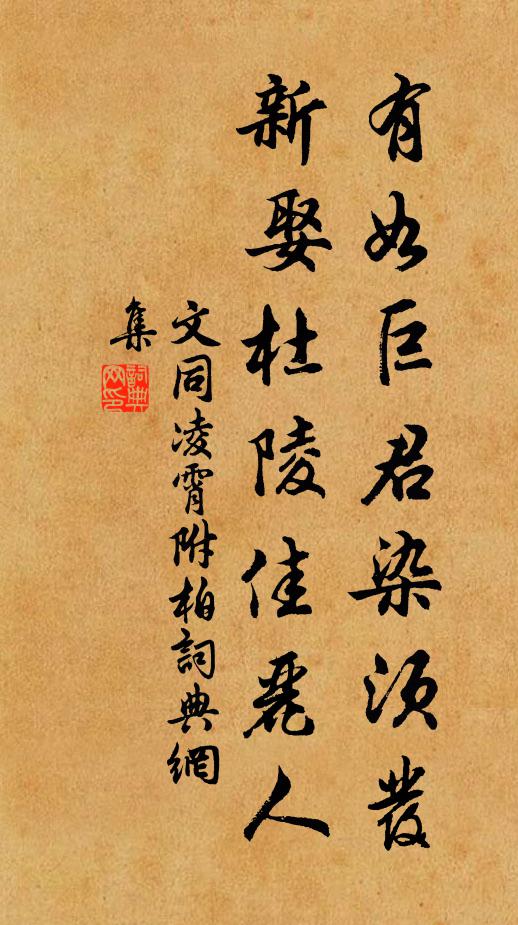 有如巨君染须发
新娶杜陵佳丽人
文同凌霄附柏詞典網
集
詞典
网印